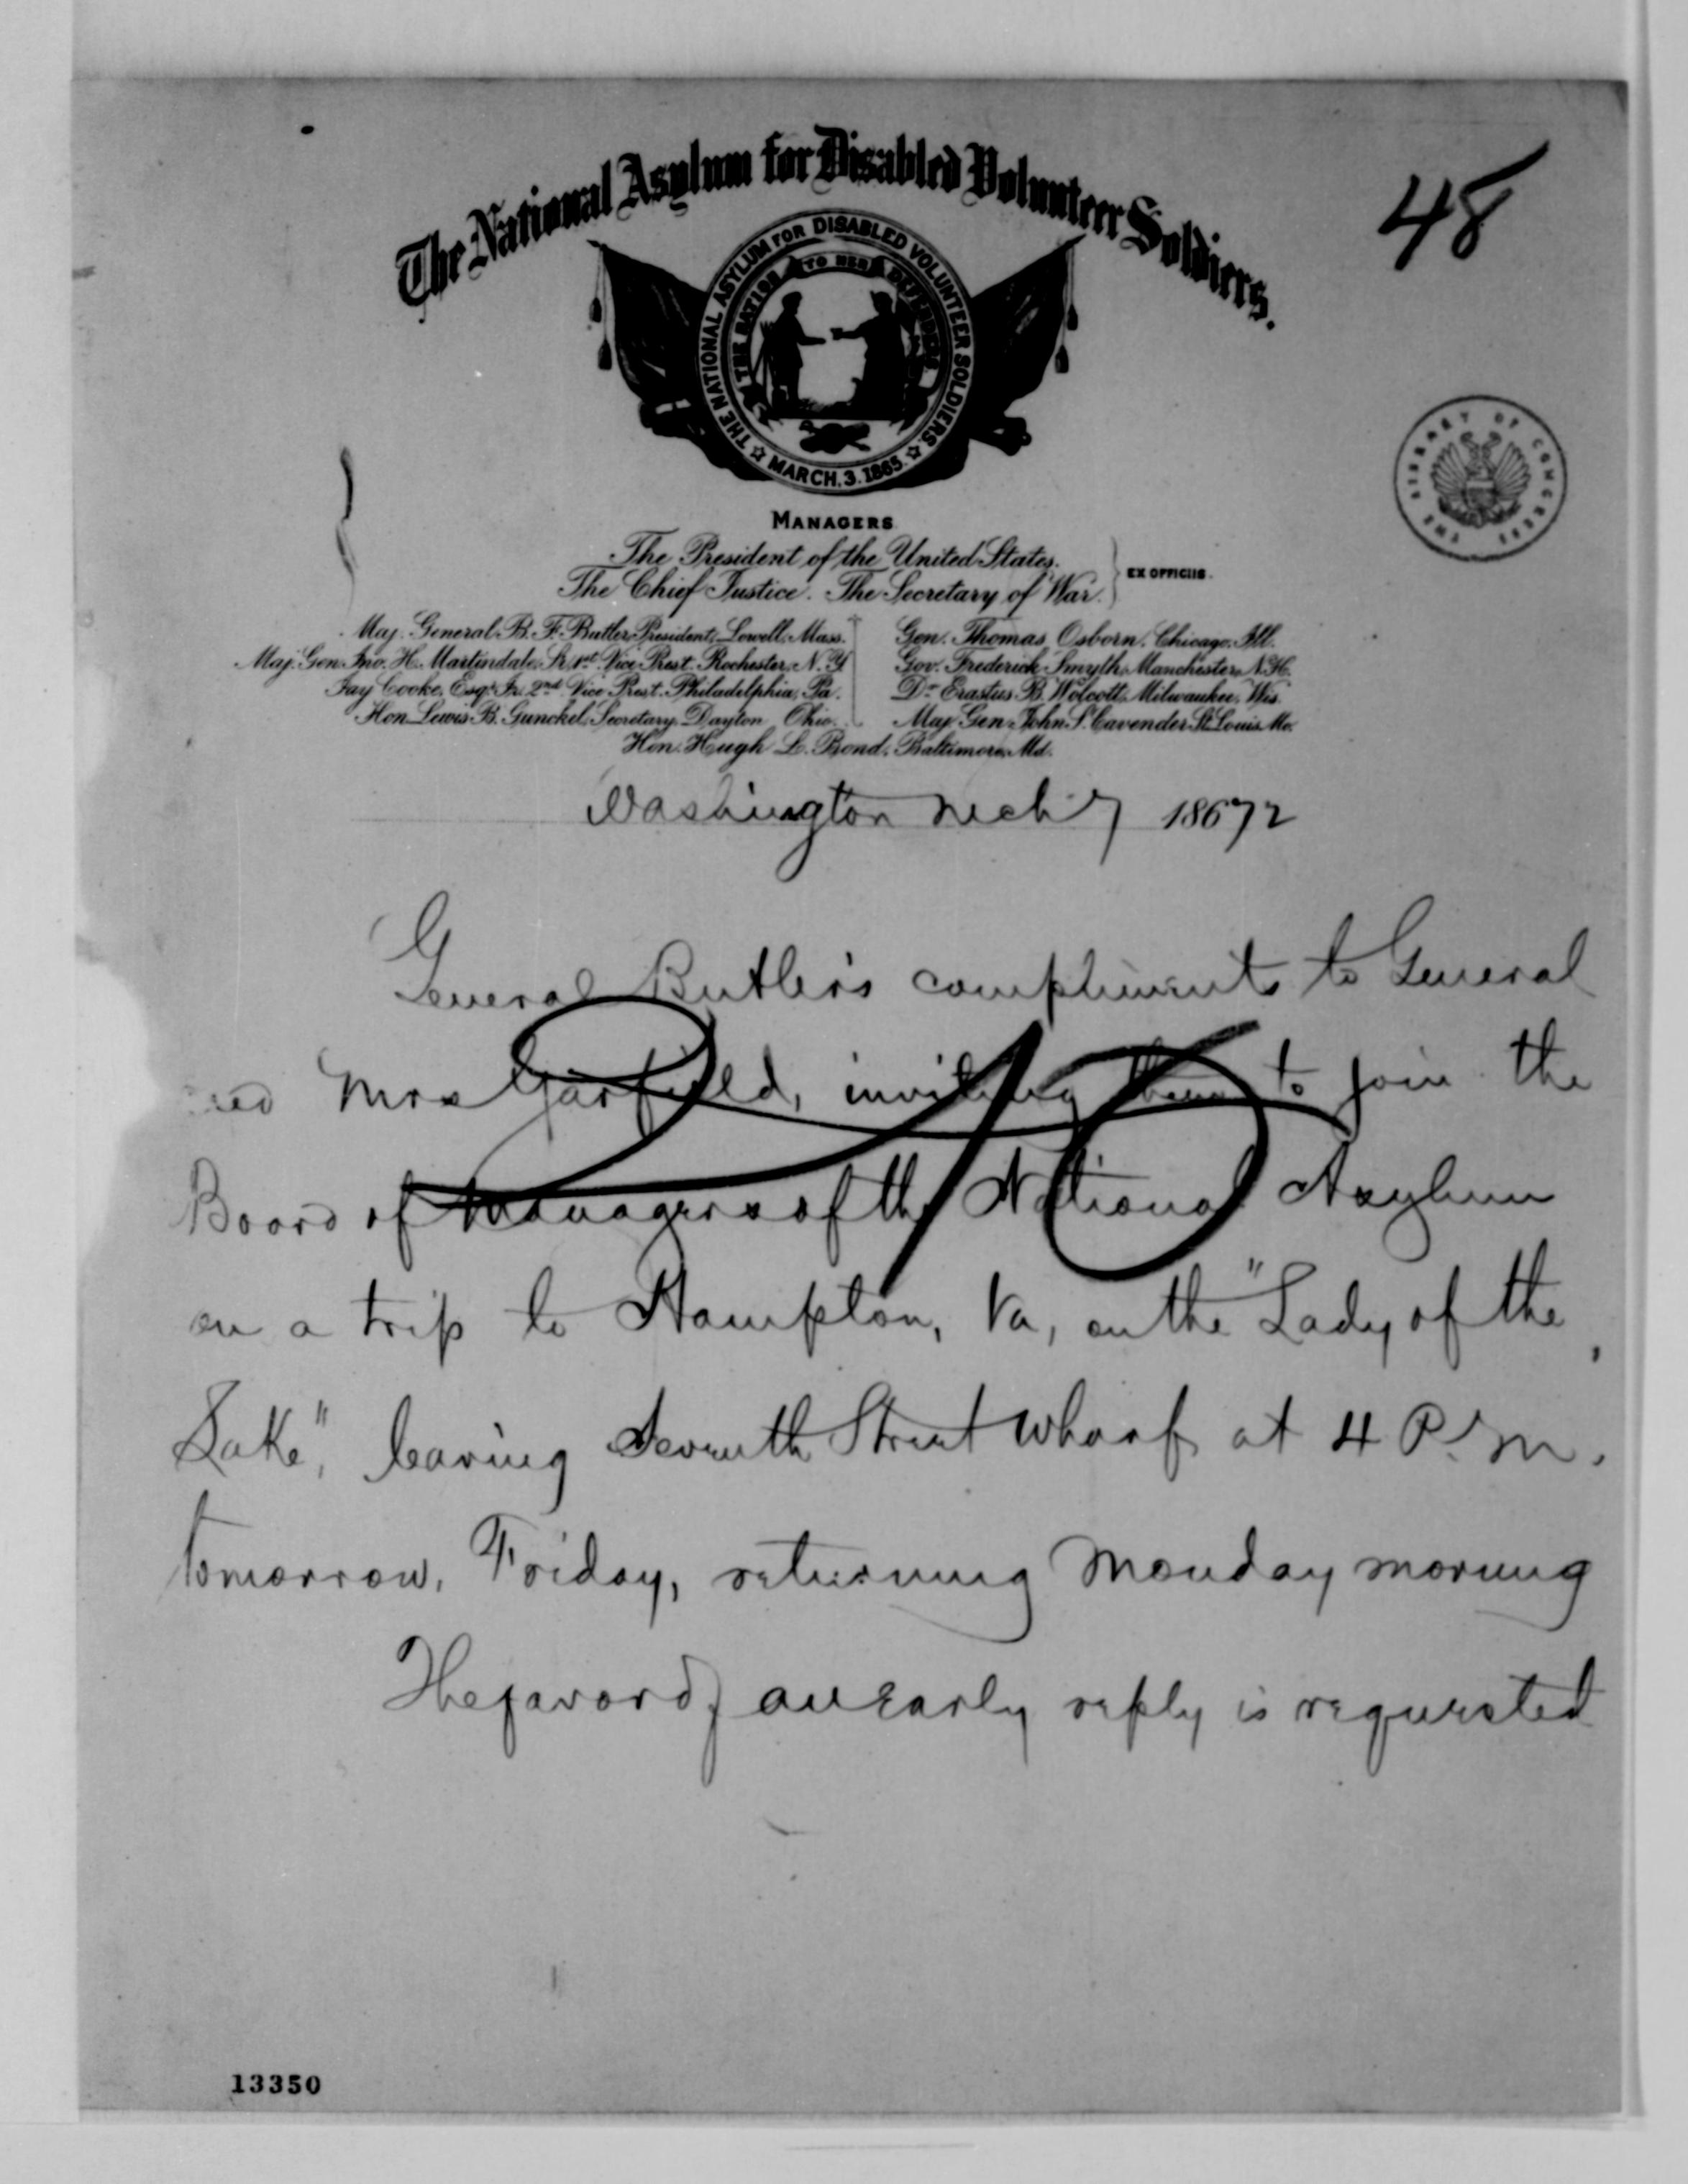 48
The National Asylum for Disabled Volunteer Soldiers.
THE NATIONAL ASYLUM FOR DISABLED VOLUNTEER SOLDIERS.
THE NATION TO HER DEFENDERS
MARCH. 3. 1865.
THE LIBRARY OF CONGRESS
MANAGERS
The President of the United States.
The Chief Justice. The Secretary of War. EX OFFICIIS.
Maj. General B. F. Butler President, Lowell, Mass.
Maj. Gen. Jno. H. Martindale, Sr. 1st Vice Prest. Rochester, N.Y.
Jay Cooke, Esqr. Jr. 2nd Vice Prest. Philadelphia, Pa.
Hon. Lewis B. Gunckel, Secretary, Dayton, Ohio.
Gen. Thomas Osborn, Chicago, Ill.
Gov. Frederick Smyth, Manchester, N.H.
Dr. Erastus B. Wolcott, Milwaukee, Wis.
Maj. Gen. John S. Cavender, St. Louis, Mo.
Hon. Hugh L. Bond, Baltimore, Md.
Washington Mch 7 18672
General Butler's compliments to General
and Mrs Garfield, inviting them to join the
Board of Managers of the National Asylum
on a trip to Hampton, Va, on the "Lady of the
Lake", leaving Seventh Street Wharf at 4 P.M.
tomorrow, Friday, returning Monday morning
The favor of an early reply is requested
13350